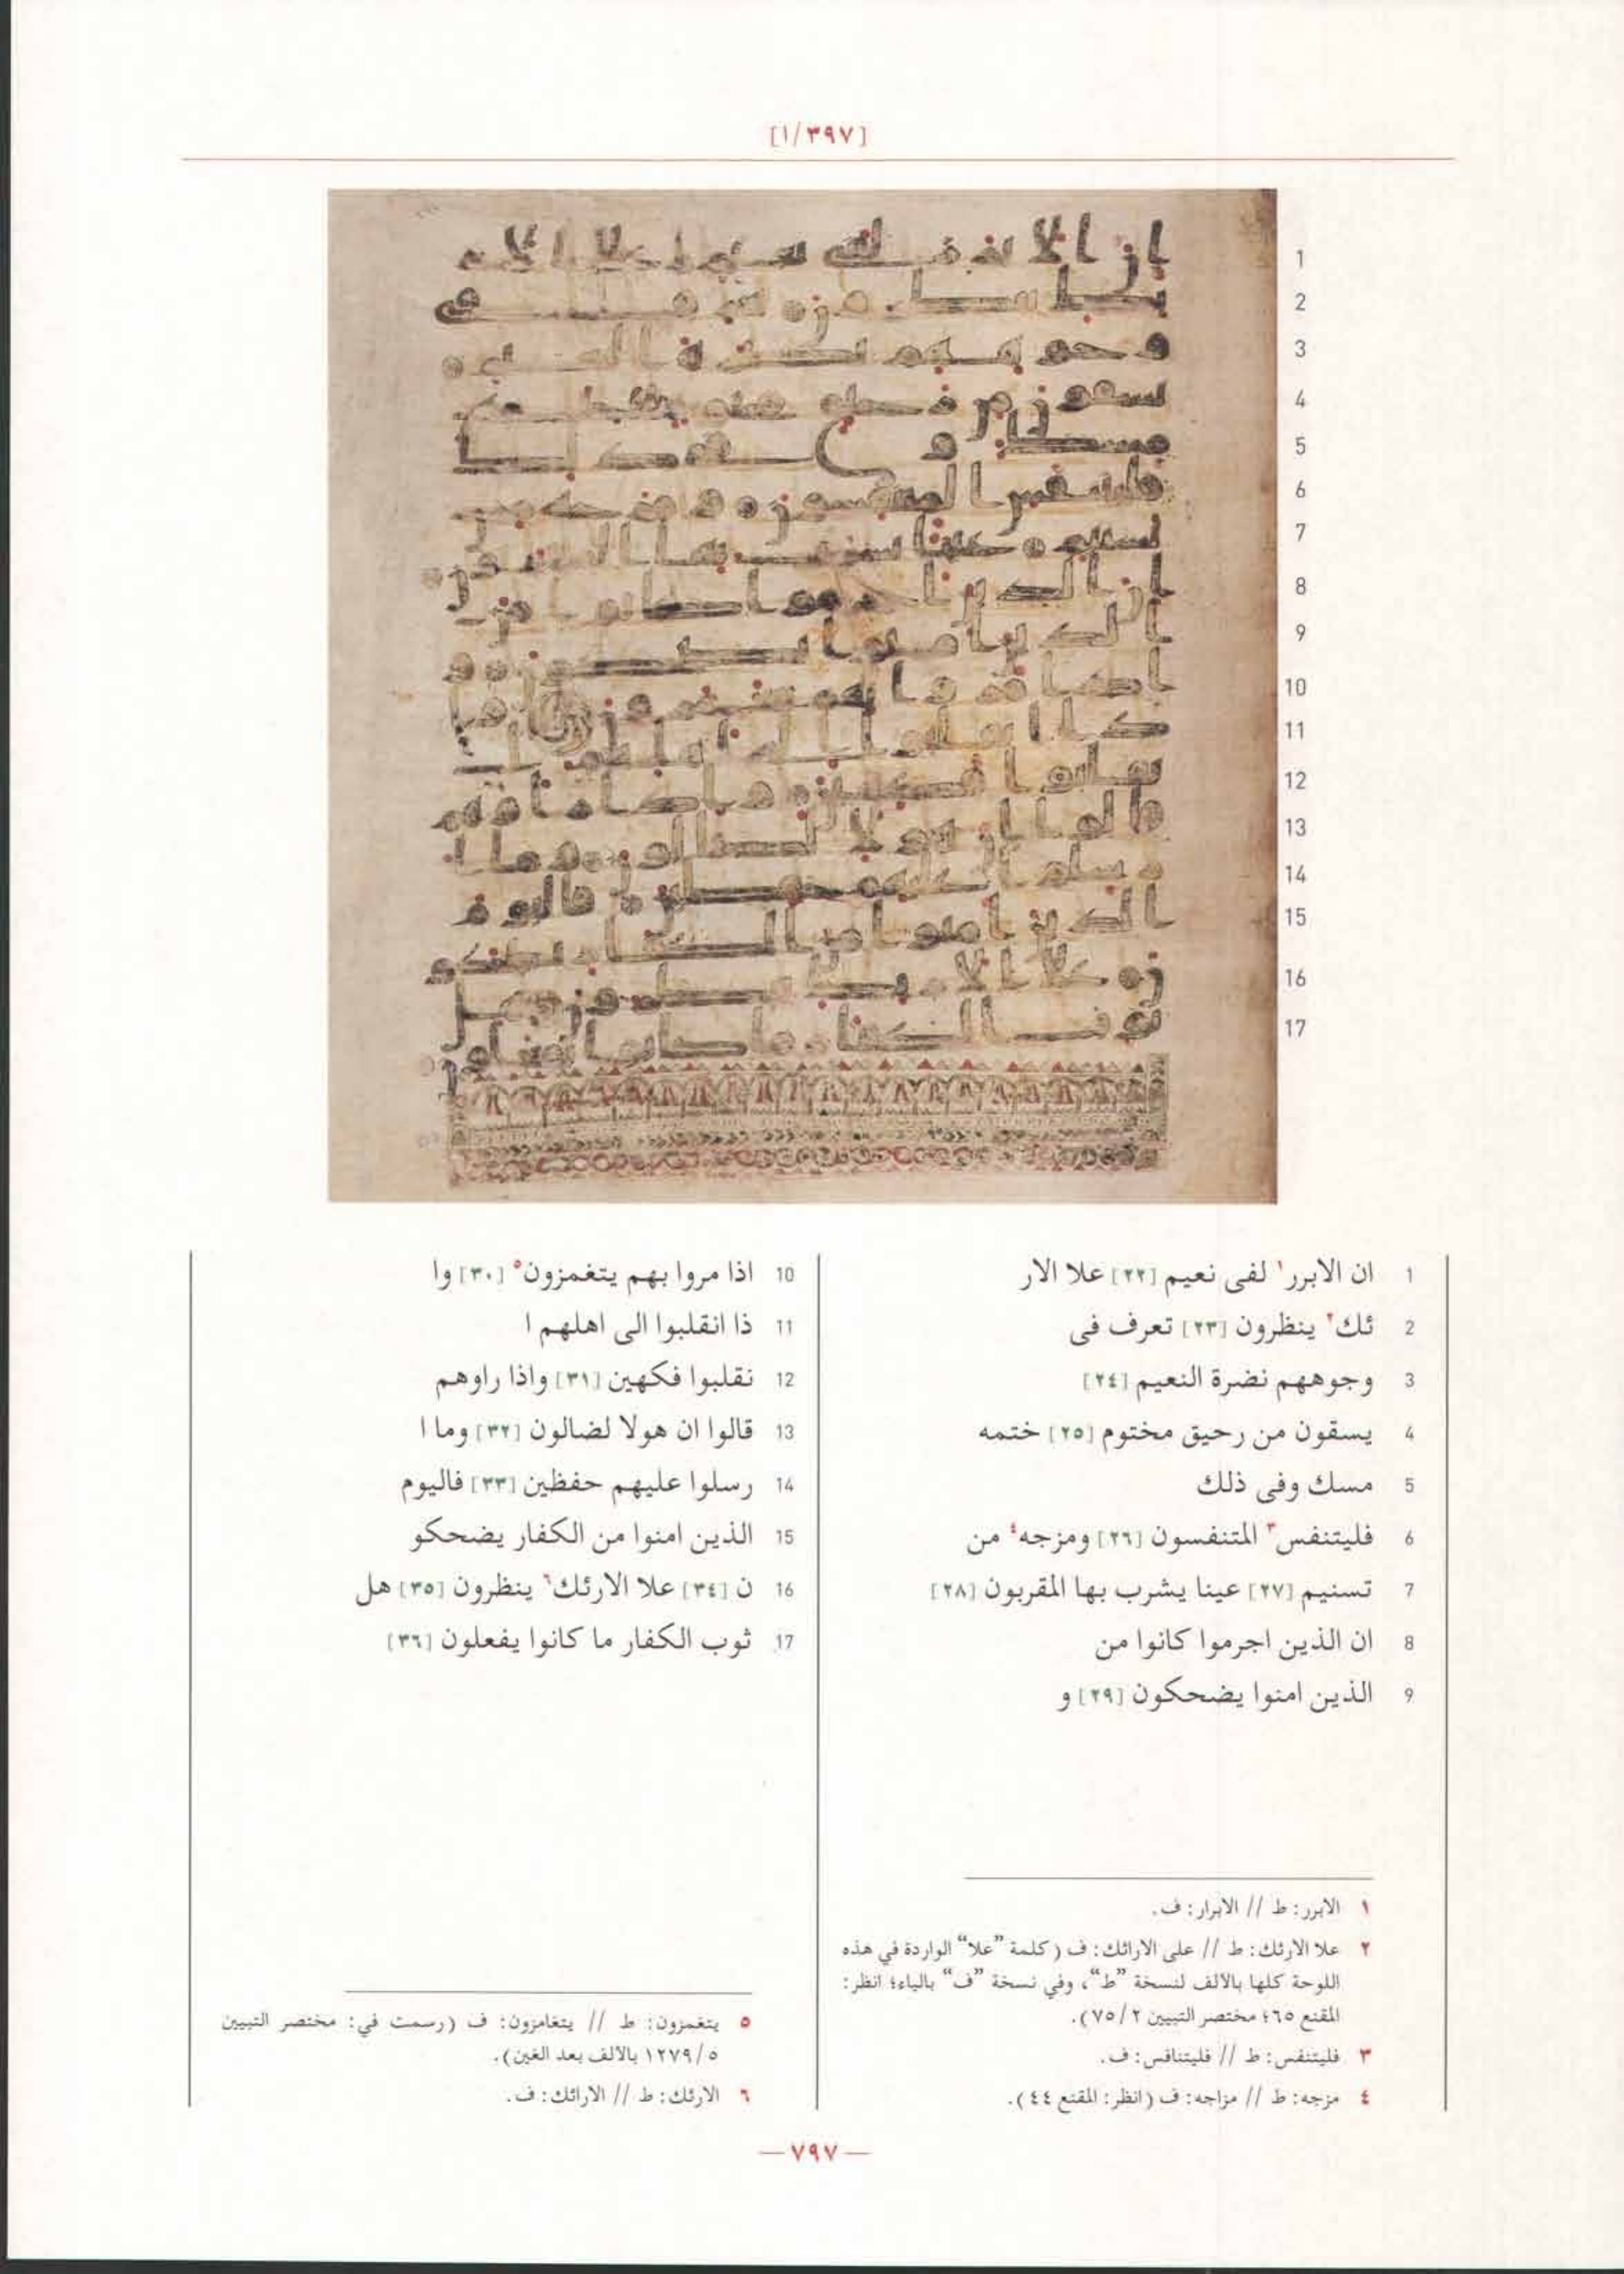 [١/٣٩٧]
1 ان الابرر١ لفى نعيم [٢٢] علا الار
2 ئك٢ ينظرون [٢٣] تعرف فى
3 وجوههم نضرة النعيم [٢٤]
4 يسقون من رحيق مختوم [٢٥] ختمه
5 مسك وفى ذلك
6 فليتنفس٣ المتنفسون [٢٦] ومزجه٤ من
7 تسنيم [٢٧] عينا يشرب بها المقربون [٢٨]
8 ان الذين اجرموا كانوا من
9 الذين امنوا يضحكون [٢٩] و
10 اذا مروا بهم يتغمزون٥ [٣٠] وا
11 ذا انقلبوا الى اهلهم ا
12 نقلبوا فكهين [٣١] واذا راوهم
13 قالوا ان هولا لضالون [٣٢] وما ا
14 رسلوا عليهم حفظين [٣٣] فاليوم
15 الذين امنوا من الكفار يضحكو
16 ن [٣٤] علا الارئك٦ ينظرون [٣٥] هل
17 ثوب الكفار ما كانوا يفعلون [٣٦]
١ الابرر: ط // الابرار: ف.
٢ علا الارئك: ط // على الارائك: ف (كلمة "علا" الواردة في هذه
اللوحة كلها بالألف لنسخة "ط"، وفي نسخة "ف" بالياء؛ انظر:
المقنع ٦٥؛ مختصر التبيين ٧٥/٢).
٣ فليتنفس: ط // فليتنافس: ف.
٤ مزجه: ط // مزاجه: ف (انظر: المقنع ٤٤).
٥ يتغمزون: ط // يتغامزون: ف (رسمت في: مختصر التبيين
١٢٧٩/٥ بالألف بعد الغين).
٦ الارئك: ط // الارائك: ف.
— ٧٩٧ —